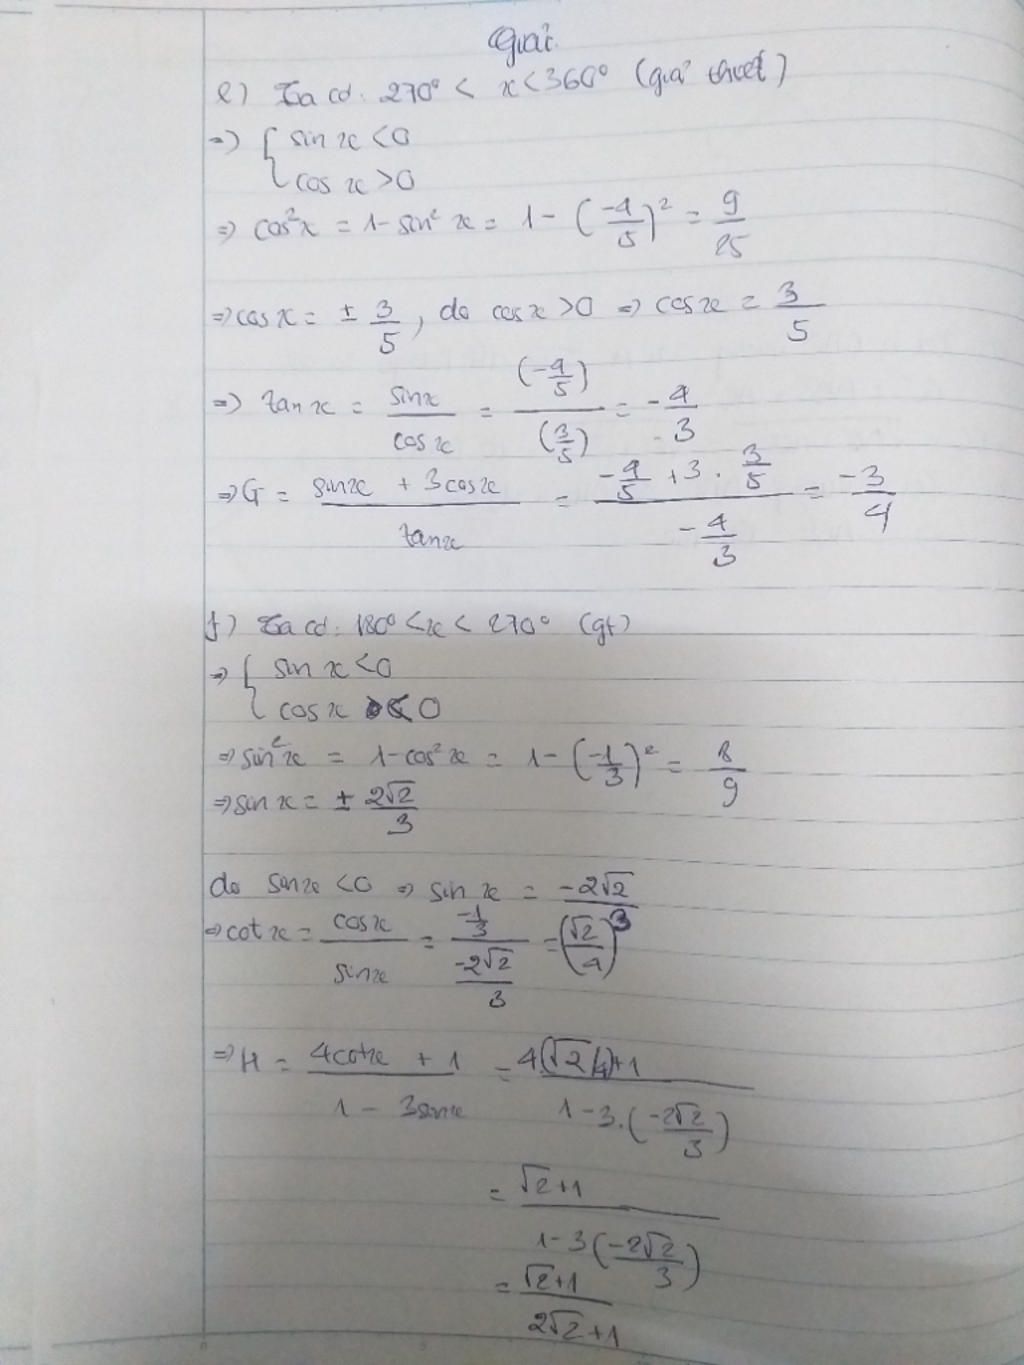 Giải
e) Ta có: 270° < x < 360° (giả thiết)
=> { sin x < 0
cos x > 0
=> cos²x = 1 - sin²x = 1 - (-4/5)² = 9/25
=> cos x = ± 3/5, do cos x > 0 => cos x = 3/5
=> tan x = sin x / cos x = (-4/5) / (3/5) = -4/3
=> G = (sin x + 3cos x) / tan x = (-4/5 + 3 . 3/5) / (-4/3) = -3/4
f) Ta có: 180° < x < 270° (gt)
=> { sin x < 0
cos x < 0
=> sin²x = 1 - cos²x = 1 - (-1/3)² = 8/9
=> sin x = ± 2√2/3
do sin x < 0 => sin x = -2√2/3
=> cot x = cos x / sin x = (-1/3) / (-2√2/3) = (√2/4)
=> H = (4cot x + 1) / (1 - 3sin x) = (4(√2/4)+1) / (1 - 3.(-2√2/3))
= (√2+1) / (1-3(-2√2/3))
= (√2+1) / (2√2+1)